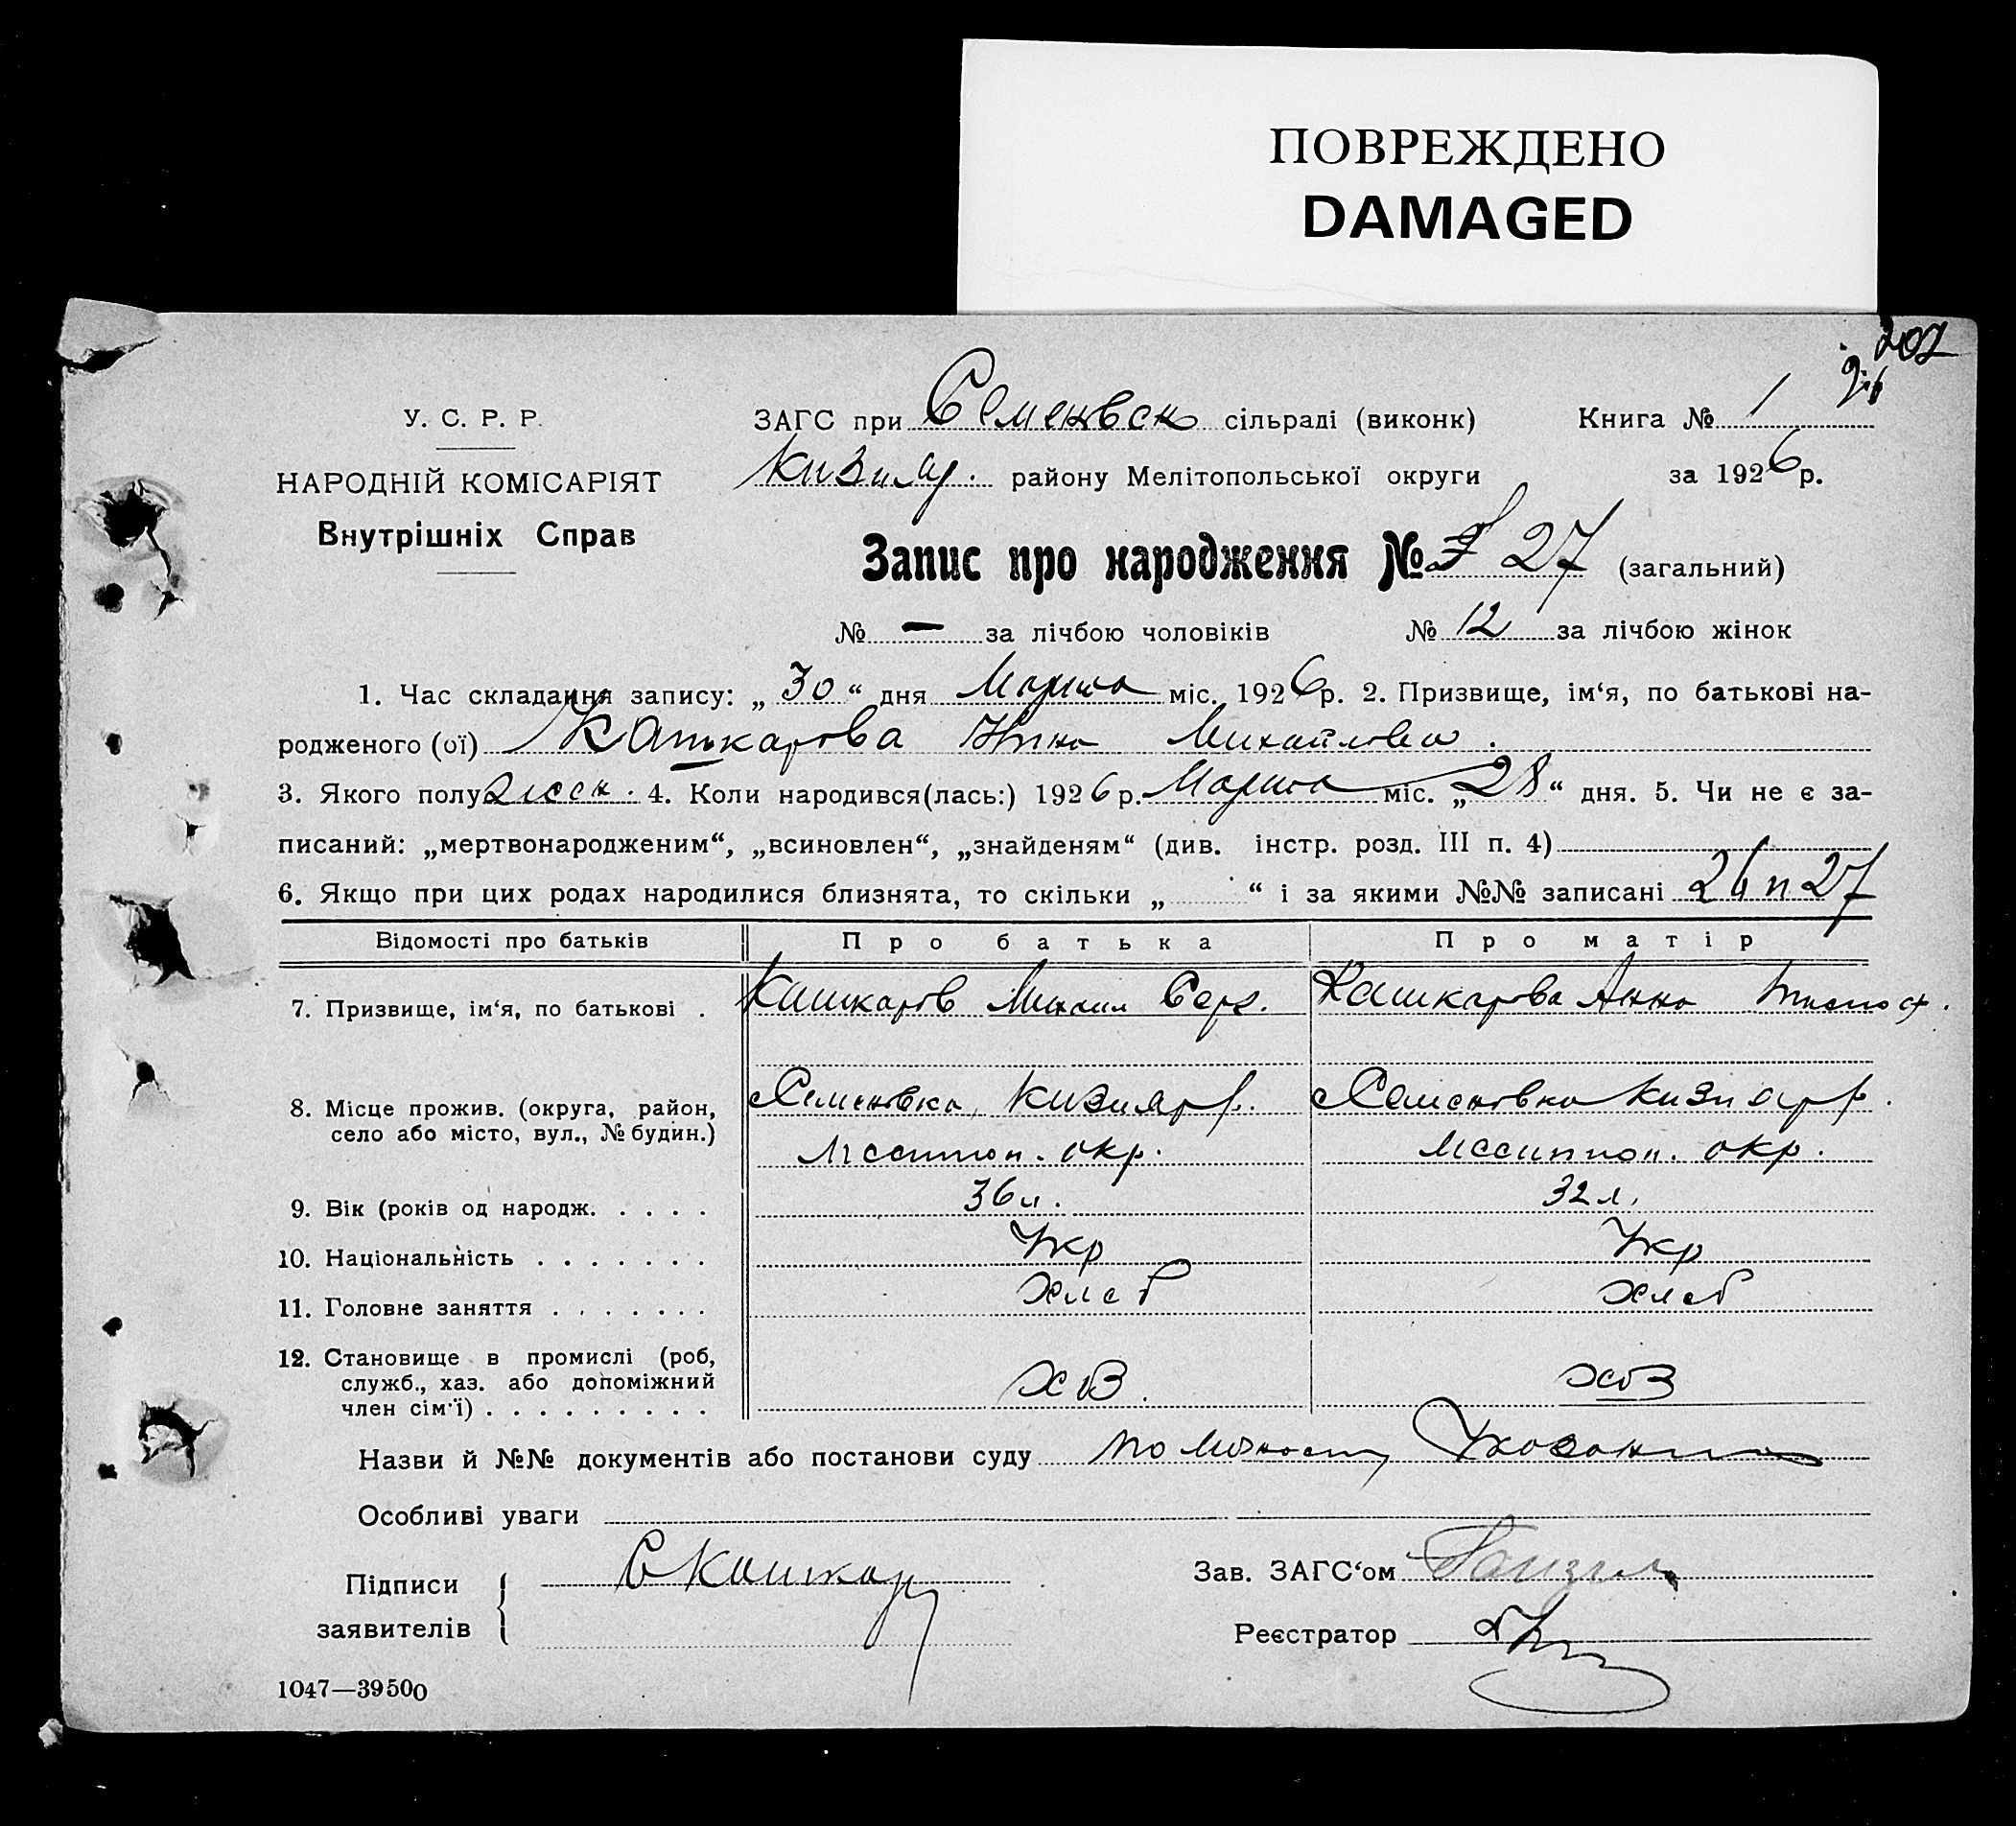 ПОВРЕЖДЕНО
DAMAGED
207
У. С. Р. Р.
НАРОДНІЙ КОМІСАРІЯТ
Внутрішніх Справ
ЗАГС при Семенвск сільраді (виконк) Книга № 1
Кизияр. району Мелітопольської округи за 1926 р.
Запис про народження № 27 (загальний)
№ — за лічбою чоловіків № 12 за лічбою жінок
1. Час складання запису: „30“ дня Марта міс. 1926 р. 2. Призвище, ім‘я, по батькові на-
родженого (ої) Кашкарова Нина Михайловна.
3. Якого полу женск. 4. Коли народився(лась:) 1926 р. Марта міс. „28“ дня. 5. Чи не є за-
писаний: „мертвонародженим“, „всиновлен“, „знайденям“ (див. інстр. розд. III п. 4)
6. Якщо при цих родах народилися близнята, то скільки „ “ і за якими №№ записані 26 и 27
Відомості про батьків Про батька Про матір
7. Призвище, ім‘я, по батькові . Кашкаров Михаил Серг. Кашкарова Анна
8. Місце прожив. (округа, район, село або місто, вул., № будин.) Семеновка, Кизияр р. Семеновка Кизияр р.
Мелитоп. окр. Мелитоп. окр.
9. Вік (років од народж. . . . . 36 л. 32 л.
10. Національність . . . . . . . Укр Укр
11. Головне заняття . . . . . . . Хлеб Хлеб
12. Становище в промислі (роб, служб., хаз. або допоміжний член сім‘ї) . . . . . . . . . хоз. хоз
Назви й №№ документів або постанови суду по личности
Особливі уваги
Підписи заявителів С Кашкар
Зав. ЗАГС‘ом
Реєстратор
1047—39500